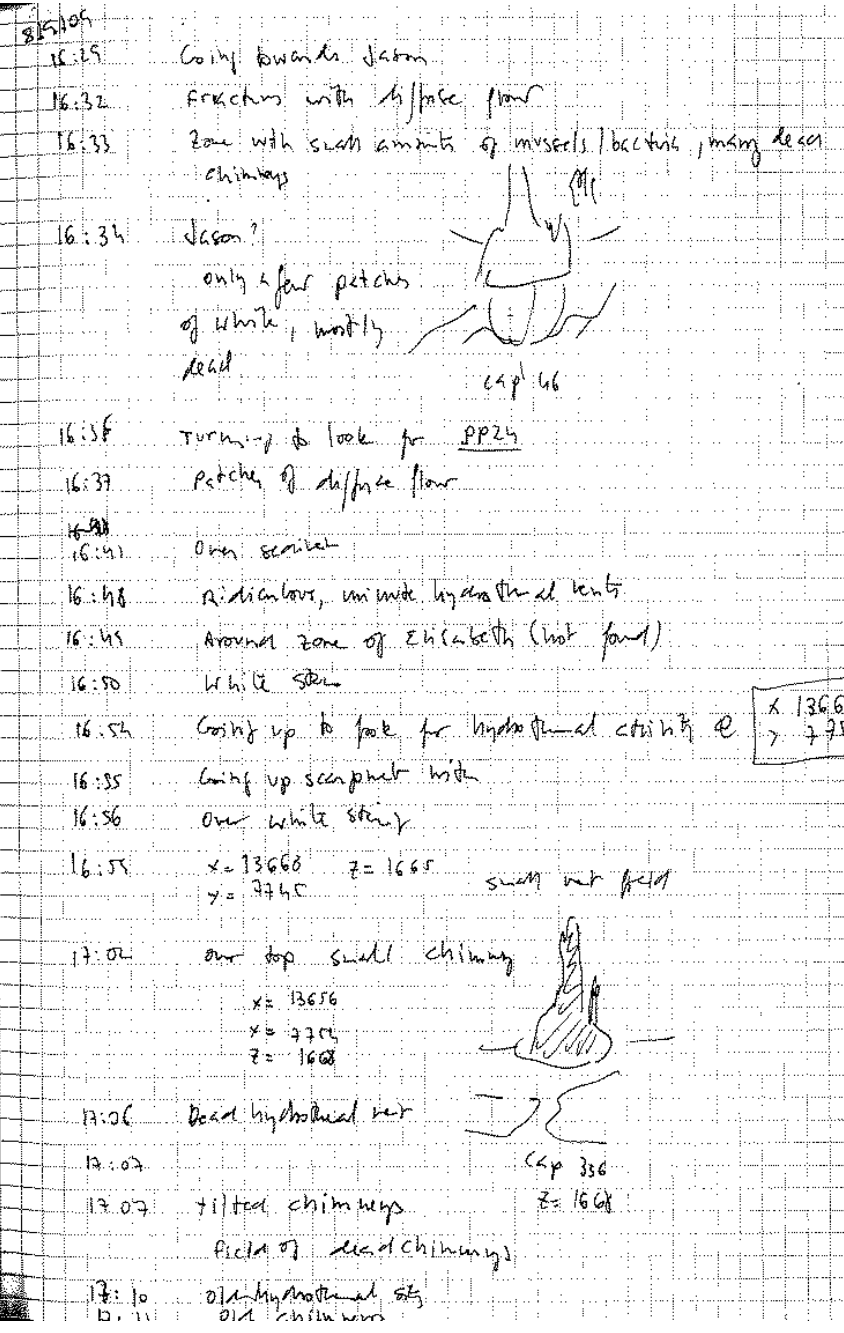 16:29 Going towards Jason
16:32 Fractures with diffuse flow
16:33 Zone with small amounts of mussels / bacteria, many dead
chimneys
16:34 Jason?
only a few patches
of white, mostly
dead
cap 46
Turning to look for PP24
16:37 Patches of diffuse flow
16:41 Over
16:48 Ridiculous, minute hydrothermal vents
Around zone of Elisabeth (not found)
16:50 White
16:54 Going up to look for hydrothermal activity @
16:55 Going up with
16:56 Over white
x = 13668 z = 1665
y = 7745 small vent field
17:02 over top small chimney
x = 13656
x = 7754
z = 1668
17:06 Dead hydrothermal vent
17:07 cap 336
17 07 tilted chimneys z = 1668
field of dead chimneys
17:10 old hydrothermal
old chimneys